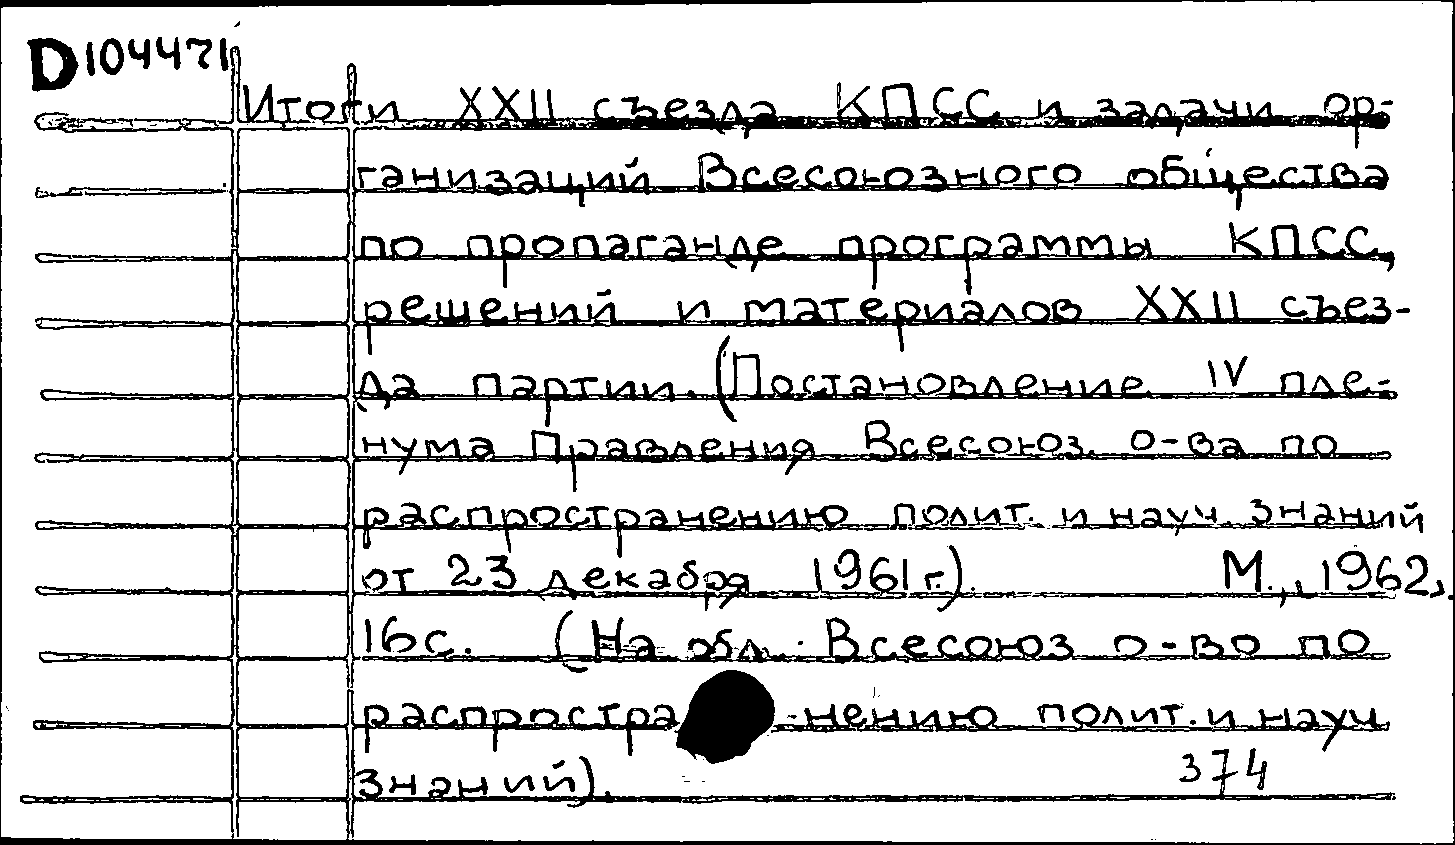 D104471
Итоги XXII съезда КПСС и задачи ор-
ганизаций Всесоюзного общества
по пропаганде программы КПСС,
решений и материалов XXII съез-
да партии. (Постановление IV пле-
нума Правления Всесоюз. о-ва по
распространению полит. и науч. знаний
от 23 декабря 1961 г.). М., 1962,
16 с. (На обл. Всесоюз о-во по
распростра-нению полит. и науч
знаний).
374